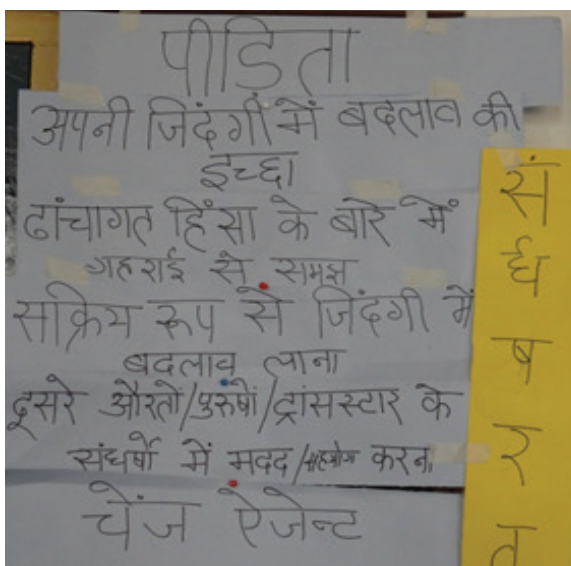 पीडिता
अपनी जिंदगी में बदलाव की
इच्छा
ढांचागत हिंसा के बारे में
गहराई से समझ
सक्रिय रूप से जिंदगी में
बदलाव लाना
दूसरे औरतों/पुरुषों/ट्रांसस्टार के
संघर्षो में मदद/सहयोग करना
चेंज ऐजेन्ट
सं
र्घ
ष
र
त